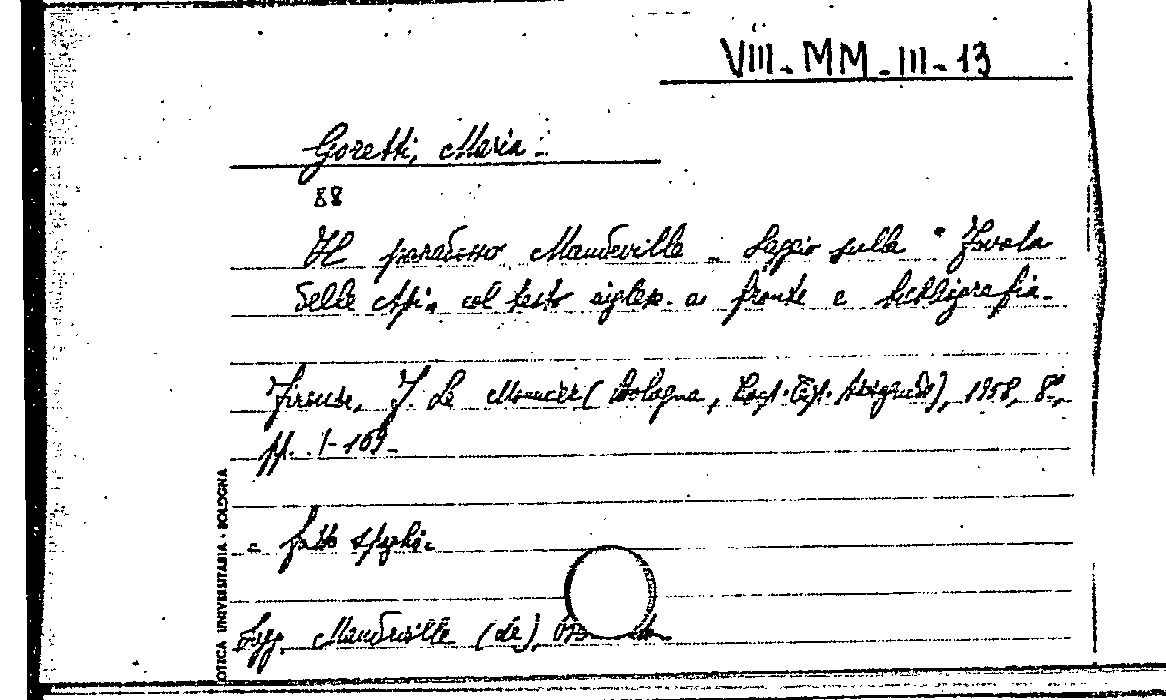 VIII - MM - III - 13
Goretti, Maria -
88
Il paradosso Mandeville - Saggio sulla "Favola
delle Api" col testo inglese a fronte e bibliografia -
Firenze, F. Le Monnier (Bologna, 1958, 8º,
pp. 1-169 -
= fatto =
Sogg. Mandeville (de),
OTECA UNIVERSITARIA - BOLOGNA